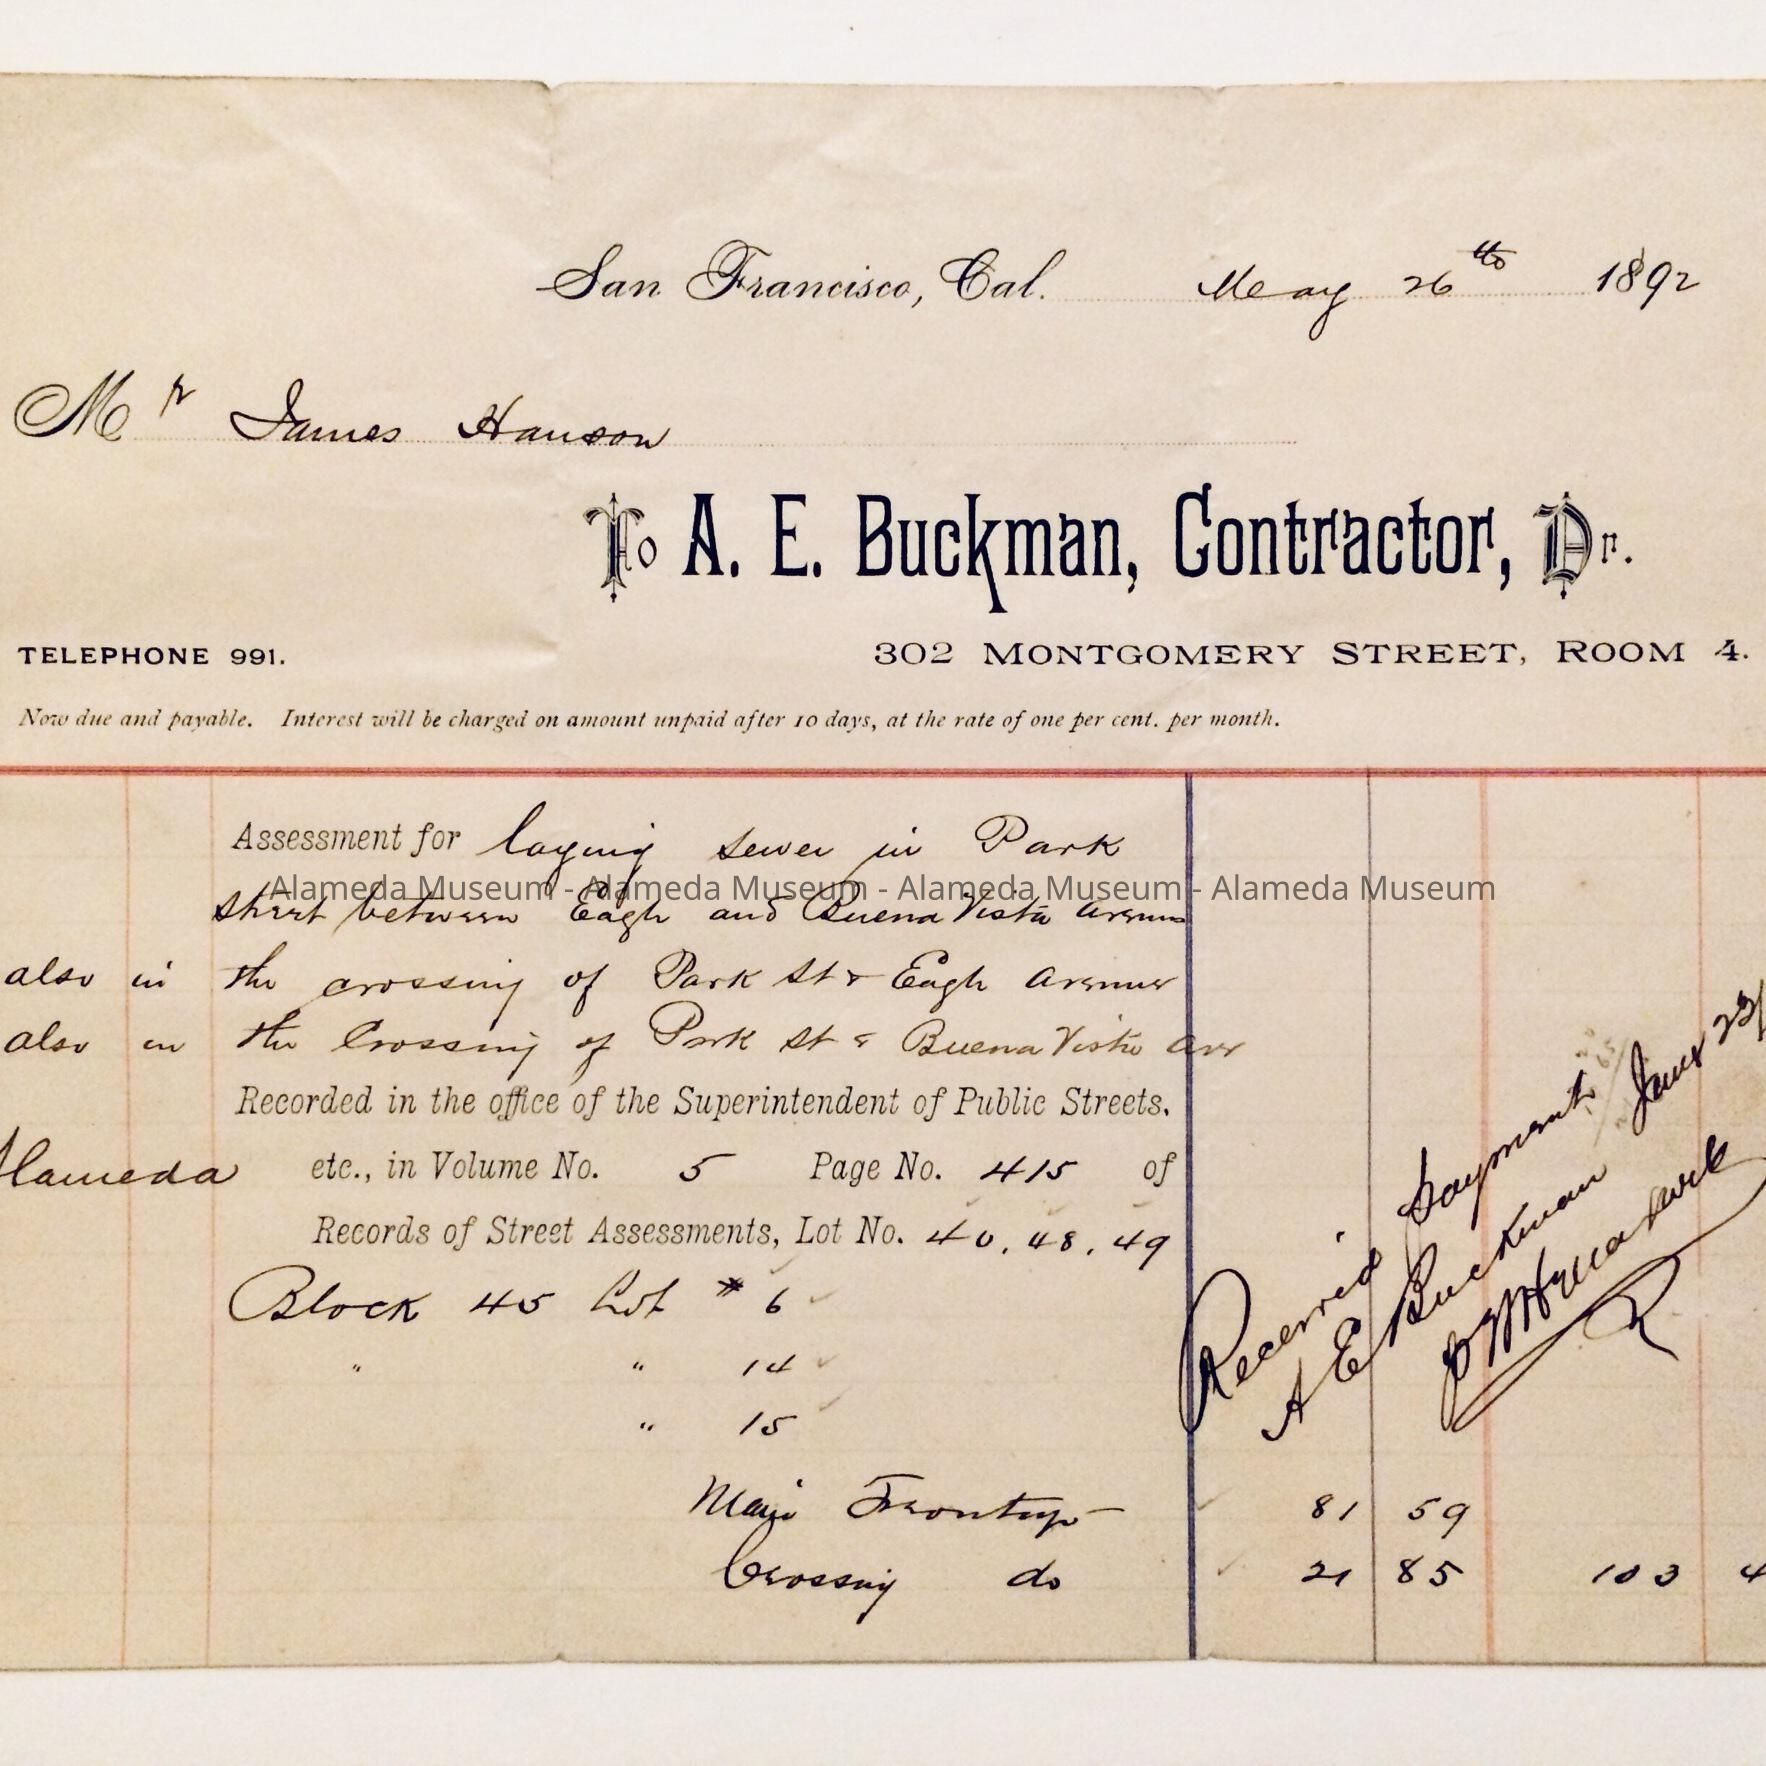 San Francisco, Cal. May 26th 1892
Mr James Hanson
To A. E. Buckman, Contractor, Dr.
TELEPHONE 991. 302 MONTGOMERY STREET, ROOM 4.
Now due and payable. Interest will be charged on amount unpaid after 10 days, at the rate of one per cent. per month.
Assessment for laying sewer in Park
Alameda Museum - Alameda Museum - Alameda Museum - Alameda Museum
Street between Eagle and Buena Vista Avenue
also in the crossing of Park St & Eagle Avenue
also in the Crossing of Park St & Buena Vista Ave
Recorded in the office of the Superintendent of Public Streets.
lameda etc., in Volume No. 5 Page No. 415 of
Records of Street Assessments, Lot No. 40, 48, 49
Block 45 Lot # 6
" " 14
" 15
Main Frontage 81 59
Crossing do 21 85 103 4
Received Payment June 23/
A E Buckman